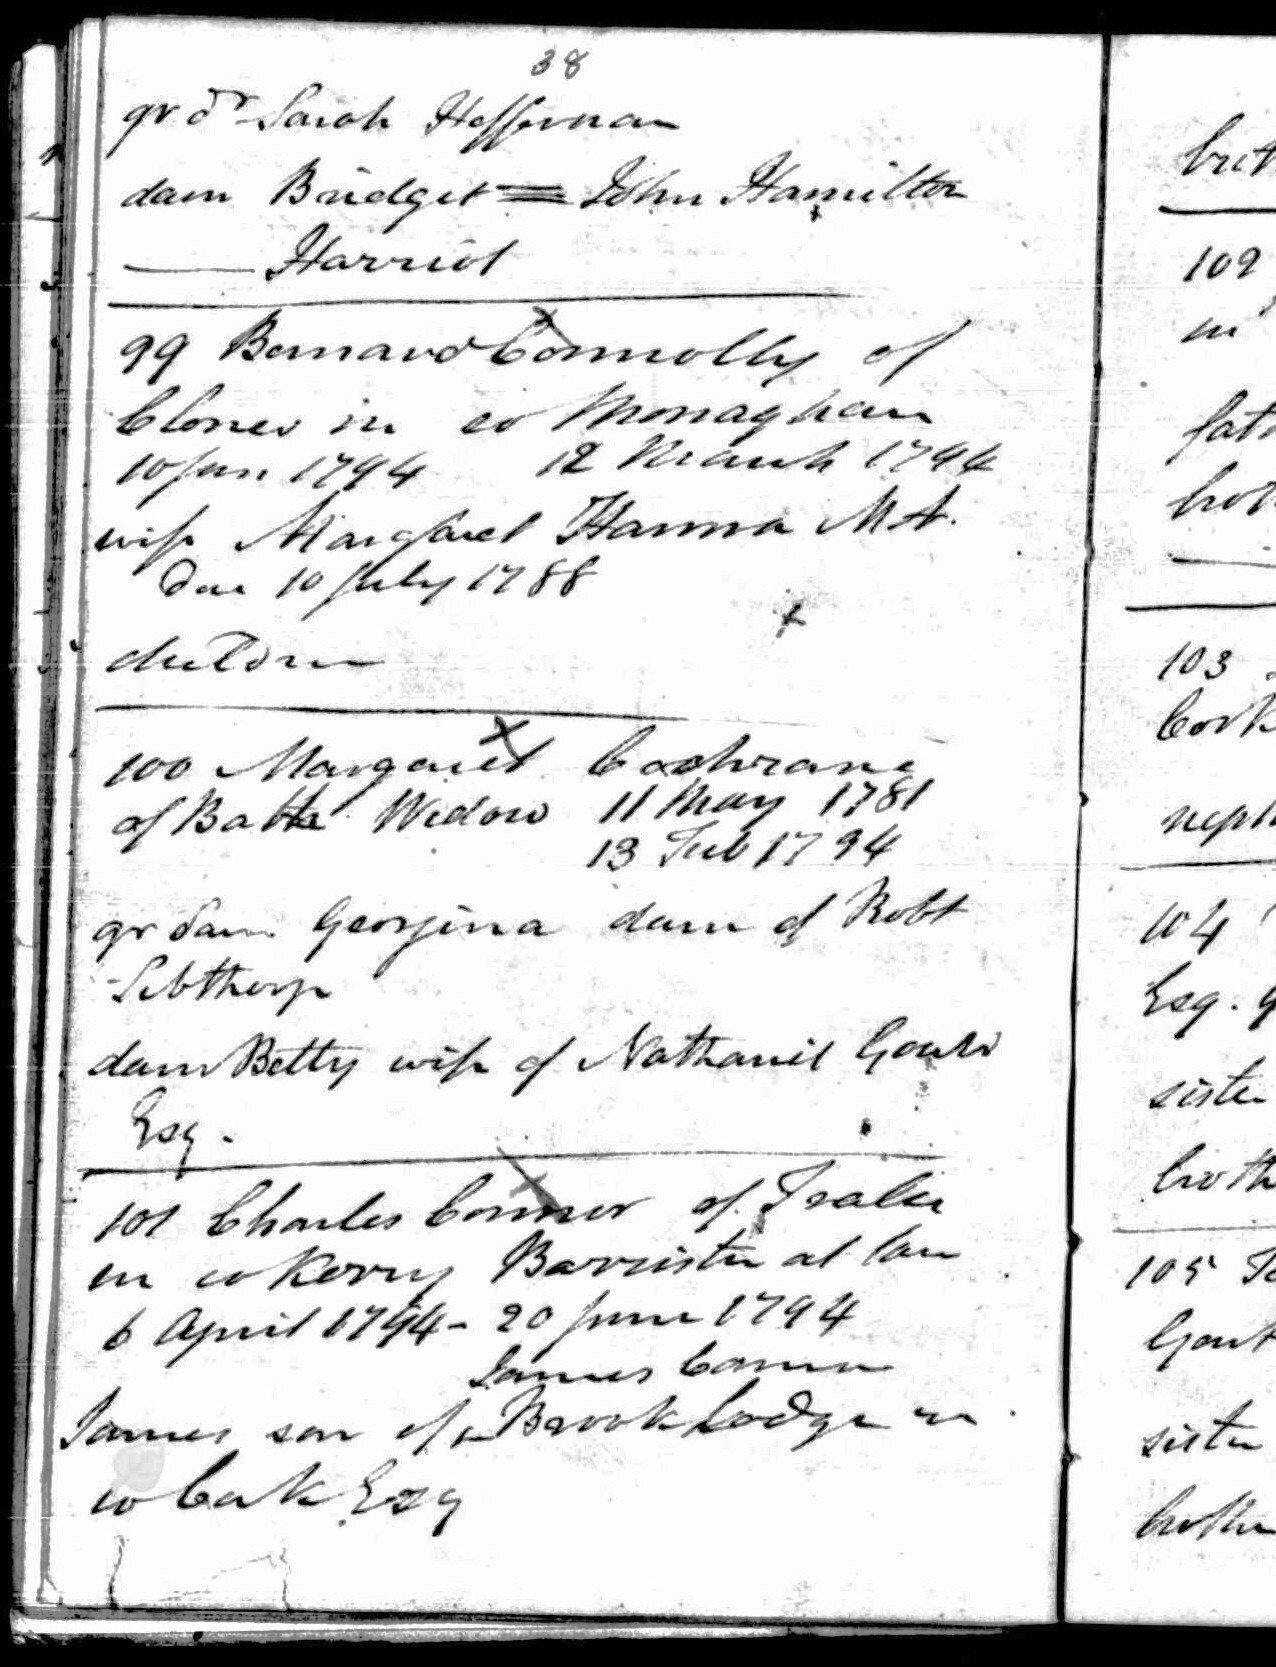 38
gr dr Sarah Heffernan
daur Bridget = John Hamilton
—— Harriot
99 Bernard Connolly of
Clones in co Monaghan
10 Jan 1794 12 March 1794
wife Margaret Hanna M A.
Dau 10 July 1788
children
100 Margaret Cochrane
of Bath Widow 11 May 1781
13 Feb 1794
gr daur Georgina daur of Robt
Sibthorp
daur Betty wife of Nathaniel Gould
Esq.
101 Charles Connor of Tralee
in co Kerry Barrister at law
6 April 1794 - 20 June 1794
James Connor
James son of Brook Lodge in
co Cork Esq
109
in
103
Cork
104
Esq.
sister
105
sister